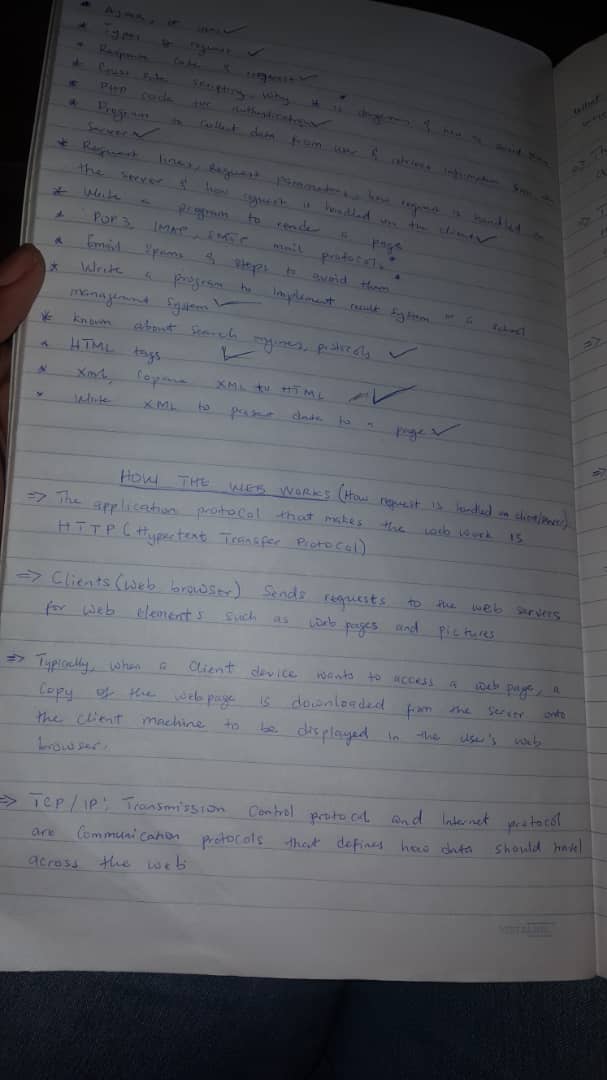 * Ajax, it uses ✓
* Types of request ✓
* Response Code & request ✓
* Cross Site Scripting, Why it is dangerous & how to avoid them
* PHP code for authentication ✓
* Program to collect data from user & retrieve information from a
Server ✓
* Request lines, Request Parameters, how request is handled on
the server & how request is handled on the client ✓
* Write a program to render a page
* POP3, IMAP, SMTP mail protocols *
* Email Spams & steps to avoid them *
* Write a program to implement result system in a school
management System ✓
* Known about Search engines, protocols ✓
* HTML tags ✓
* Xml, Compare XML to HTML ✓
* Write XML to present data to a page ✓
HOW THE WEB WORKS (How request is handled on client/server)
=> The application protocol that makes the web work is
HTTP (Hypertext Transfer Protocol)
=> Clients (web browser) Sends requests to the web servers
for web elements such as web pages and pictures
=> Typically, when a client device wants to access a web page, a
Copy of the web page is downloaded from the server onto
the client machine to be displayed in the user's web
browser.
=> TCP/IP: Transmission Control protocol and Internet protocol
are Communication protocols that defines how data should travel
across the web